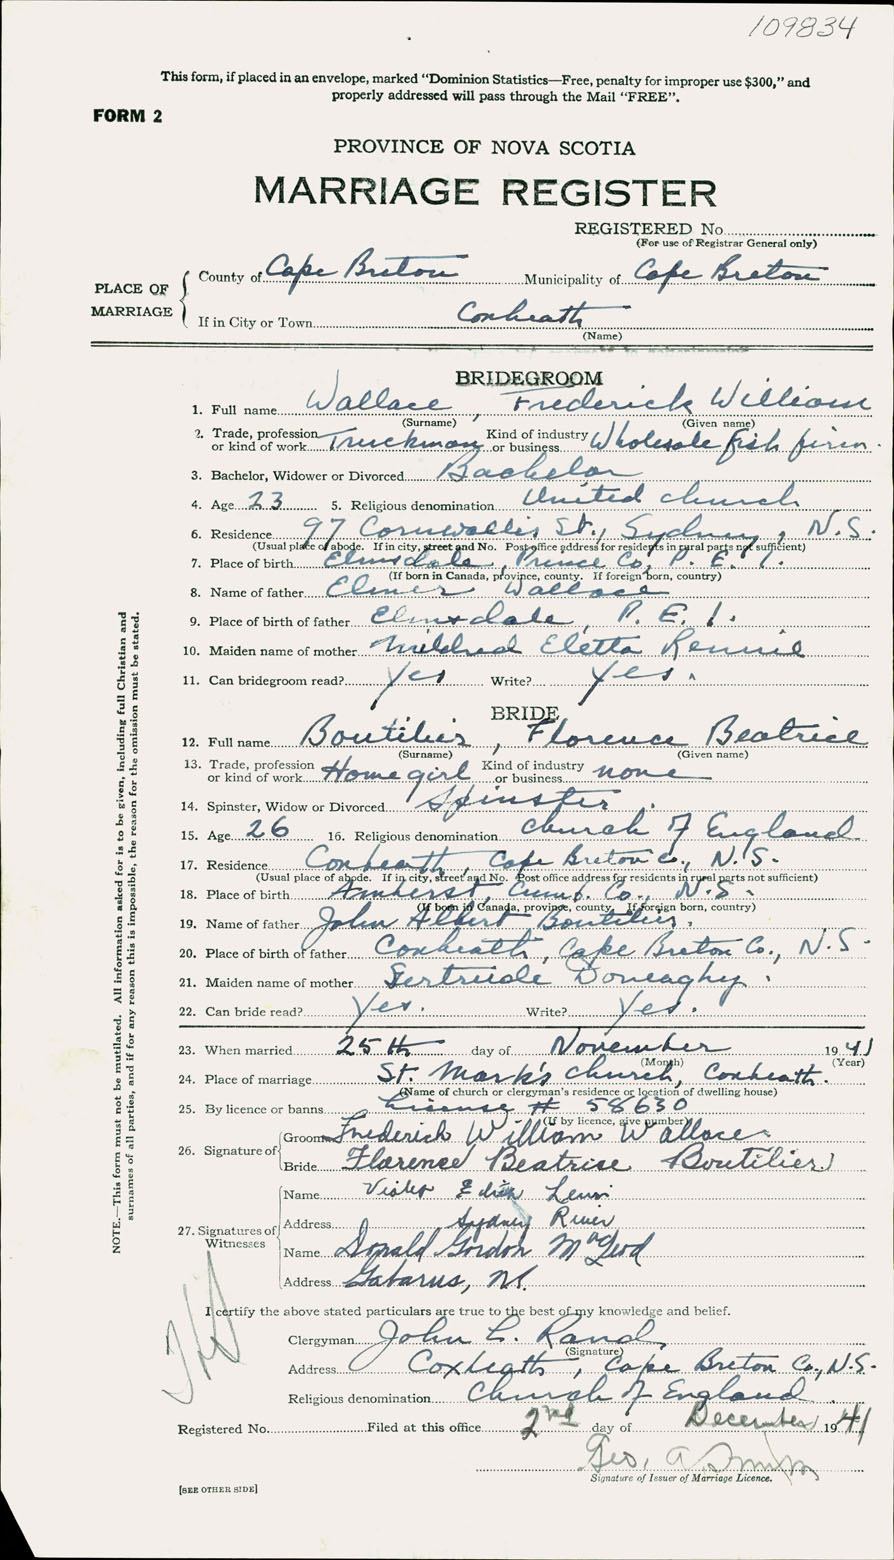 109834
This form, if placed in an envelope, marked “Dominion Statistics—Free, penalty for improper use $300,” and
properly addressed will pass through the Mail “FREE”.
FORM 2
PROVINCE OF NOVA SCOTIA
MARRIAGE REGISTER
REGISTERED No.
(For use of Registrar General only)
PLACE OF MARRIAGE
County of Cape Breton Municipality of Cape Breton
If in City or Town Coxheath
(Name)
BRIDEGROOM
1. Full name Wallace, Frederick William
(Surname) (Given name)
2. Trade, profession or kind of work Truckman Kind of industry or business Wholesale fish firm.
3. Bachelor, Widower or Divorced Bachelor
4. Age 23 5. Religious denomination United church
6. Residence 97 Cornwallis St., Sydney, N.S.
(Usual place of abode. If in city, street and No. Post office address for residents in rural parts not sufficient)
7. Place of birth Elmsdale, Prince Co, P. E. I.
(If born in Canada, province, county. If foreign born, country)
8. Name of father Elmer Wallace
9. Place of birth of father Elmsdale, P. E. I.
10. Maiden name of mother Mildred Eletta Rennie
11. Can bridegroom read? Yes Write? Yes.
BRIDE
12. Full name Boutilier, Florence Beatrice
(Surname) (Given name)
13. Trade, profession or kind of work Home girl Kind of industry or business none
14. Spinster, Widow or Divorced Spinster.
15. Age 26 16. Religious denomination Church of England
17. Residence Coxheath, Cape Breton Co., N.S.
(Usual place of abode. If in city, street and No. Post office address for residents in rural parts not sufficient)
18. Place of birth Amherst, Cumb. Co., N.S.
(If born in Canada, province, county. If foreign born, country)
19. Name of father John Albert Boutilier.
20. Place of birth of father Coxheath, Cape Breton Co., N.S.
21. Maiden name of mother Gertrude Doneaghy.
22. Can bride read? Yes. Write? Yes.
23. When married 25th day of November 1941
(Month) (Year)
24. Place of marriage St. Mark's church, Coxheath.
(Name of church or clergyman's residence or location of dwelling house)
25. By licence or banns License # 58630
(If by licence, give number)
26. Signature of Groom Frederick William Wallace
Bride Florence Beatrice Boutilier
27. Signatures of Witnesses
Name Edith
Address Sydney River
Name Donald Gordon McLeod
Address Gabarus, NS.
I certify the above stated particulars are true to the best of my knowledge and belief.
Clergyman John C. Rand
(Signature)
Address Coxheath, Cape Breton Co., N.S.
Religious denomination Church of England.
Registered No. Filed at this office 2nd day of December 1941
Geo. A.
Signature of Issuer of Marriage Licence.
[SEE OTHER SIDE]
NOTE.—This form must not be mutilated. All information asked for is to be given, including full Christian and
surnames of all parties, and if for any reason this is impossible, the reason for the omission must be stated.